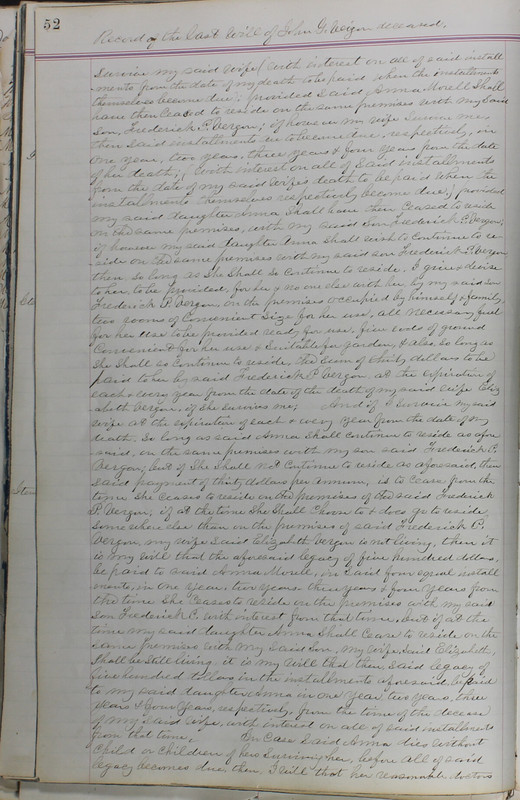 52
Record of the Last Will of John G. Vergon deceased.
Survive my said wife (with interest on all of said install
ments from the date of my death to be paid when the installments
themselves become due;) provided said Anna Morell Shall
have then Ceased to reside on the same premises with my said
Son, Frederick P. Vergon; if however my wife Survive me,
then said installments to become due, respectively, in
One year, two years, three years & four years from the date
of her death; (with interest on all of said installments
from the date of my said wifes death to be paid when the
installments themselves respectively become due;) provided
my said daughter Anna Shall have then Ceased to reside
on the same premises, with my said Son Frederick P. Vergon;
if however my said daughter Anna Shall wish to Continue to re-
side on the same premises with my said son Frederick P. Vergon
then So long as She Shall So Continue to reside. I give & devise
to her, to be provided, for her & no one else with her, by my said son
Frederick P. Vergon, on the premises occupied by himself & family,
two rooms of Convenient Size for her use, all necessary fuel
for her use to be provided ready for use, five rods of ground
Convenient for her use & Suitable for garden, & also, so long as
She Shall so Continue to reside, the Sum of thirty dollars to be
paid to her by said Frederick P. Vergon at the expiration of
each & every year from the date of the death of my said wife Eliz
abeth Vergon, if She survives me; And if I Survive my said
wife at the expiration of each & every year from the date of my
death, So long as said Anna Shall Continue to reside as afore
said, on the same premises with my son said Frederick P.
Vergon; but if She Shall not Continue to reside as aforesaid, then
said payment of thirty dollars per Annum, is to Cease from the
time She Ceases to reside on the premises of the said Frederick
P. Vergon; if at the time She Shall Chose to & does go to reside
Somewhere else than on the premises of said Frederick P.
Vergon, my wife Said Elizabeth Vergon is not living, then it
is my will that the aforesaid legacy of five hundred dollars,
be paid to said Anna Morell, in said four equal install
ments, in one year, two years, three years & four years from
the time She Ceases to reside on the premises with my said
son Frederick P. with interest from that time, but if at the
time my said daughter Anna Shall Cease to reside on the
same premises with my said Son, my wife, said Elizabeth,
Shall be still living it is my will that then, said legacy of
five hundred dollars in the installments aforesaid, be paid
to my said daughter Anna in one year, two years, three
years & four years, respectively, from the time of the decease
of my said wife, with interest on all of said installments
from that time. In Case Said Anna dies without
Child or Children of hers Surviving her, before all of said
legacy becomes due, then, I will that her reasonable doctors